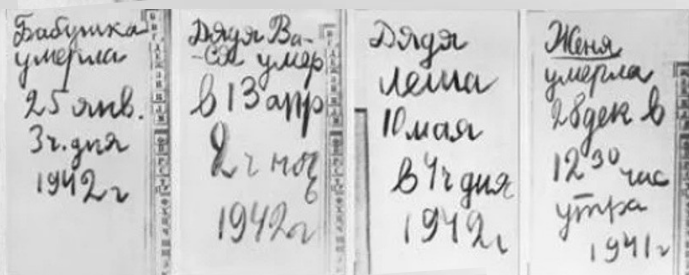 Бабушка
умерла
25 янв.
3 ч. дня
1942 г
Дядя Ва-
-ся умер
в 13 апр
2 ч ноч
1942 г
Дядя
Леша
10 мая
в 4 ч дня
1942 г
Женя
умерла
28 дек в
12 30 час
утра
1941 г